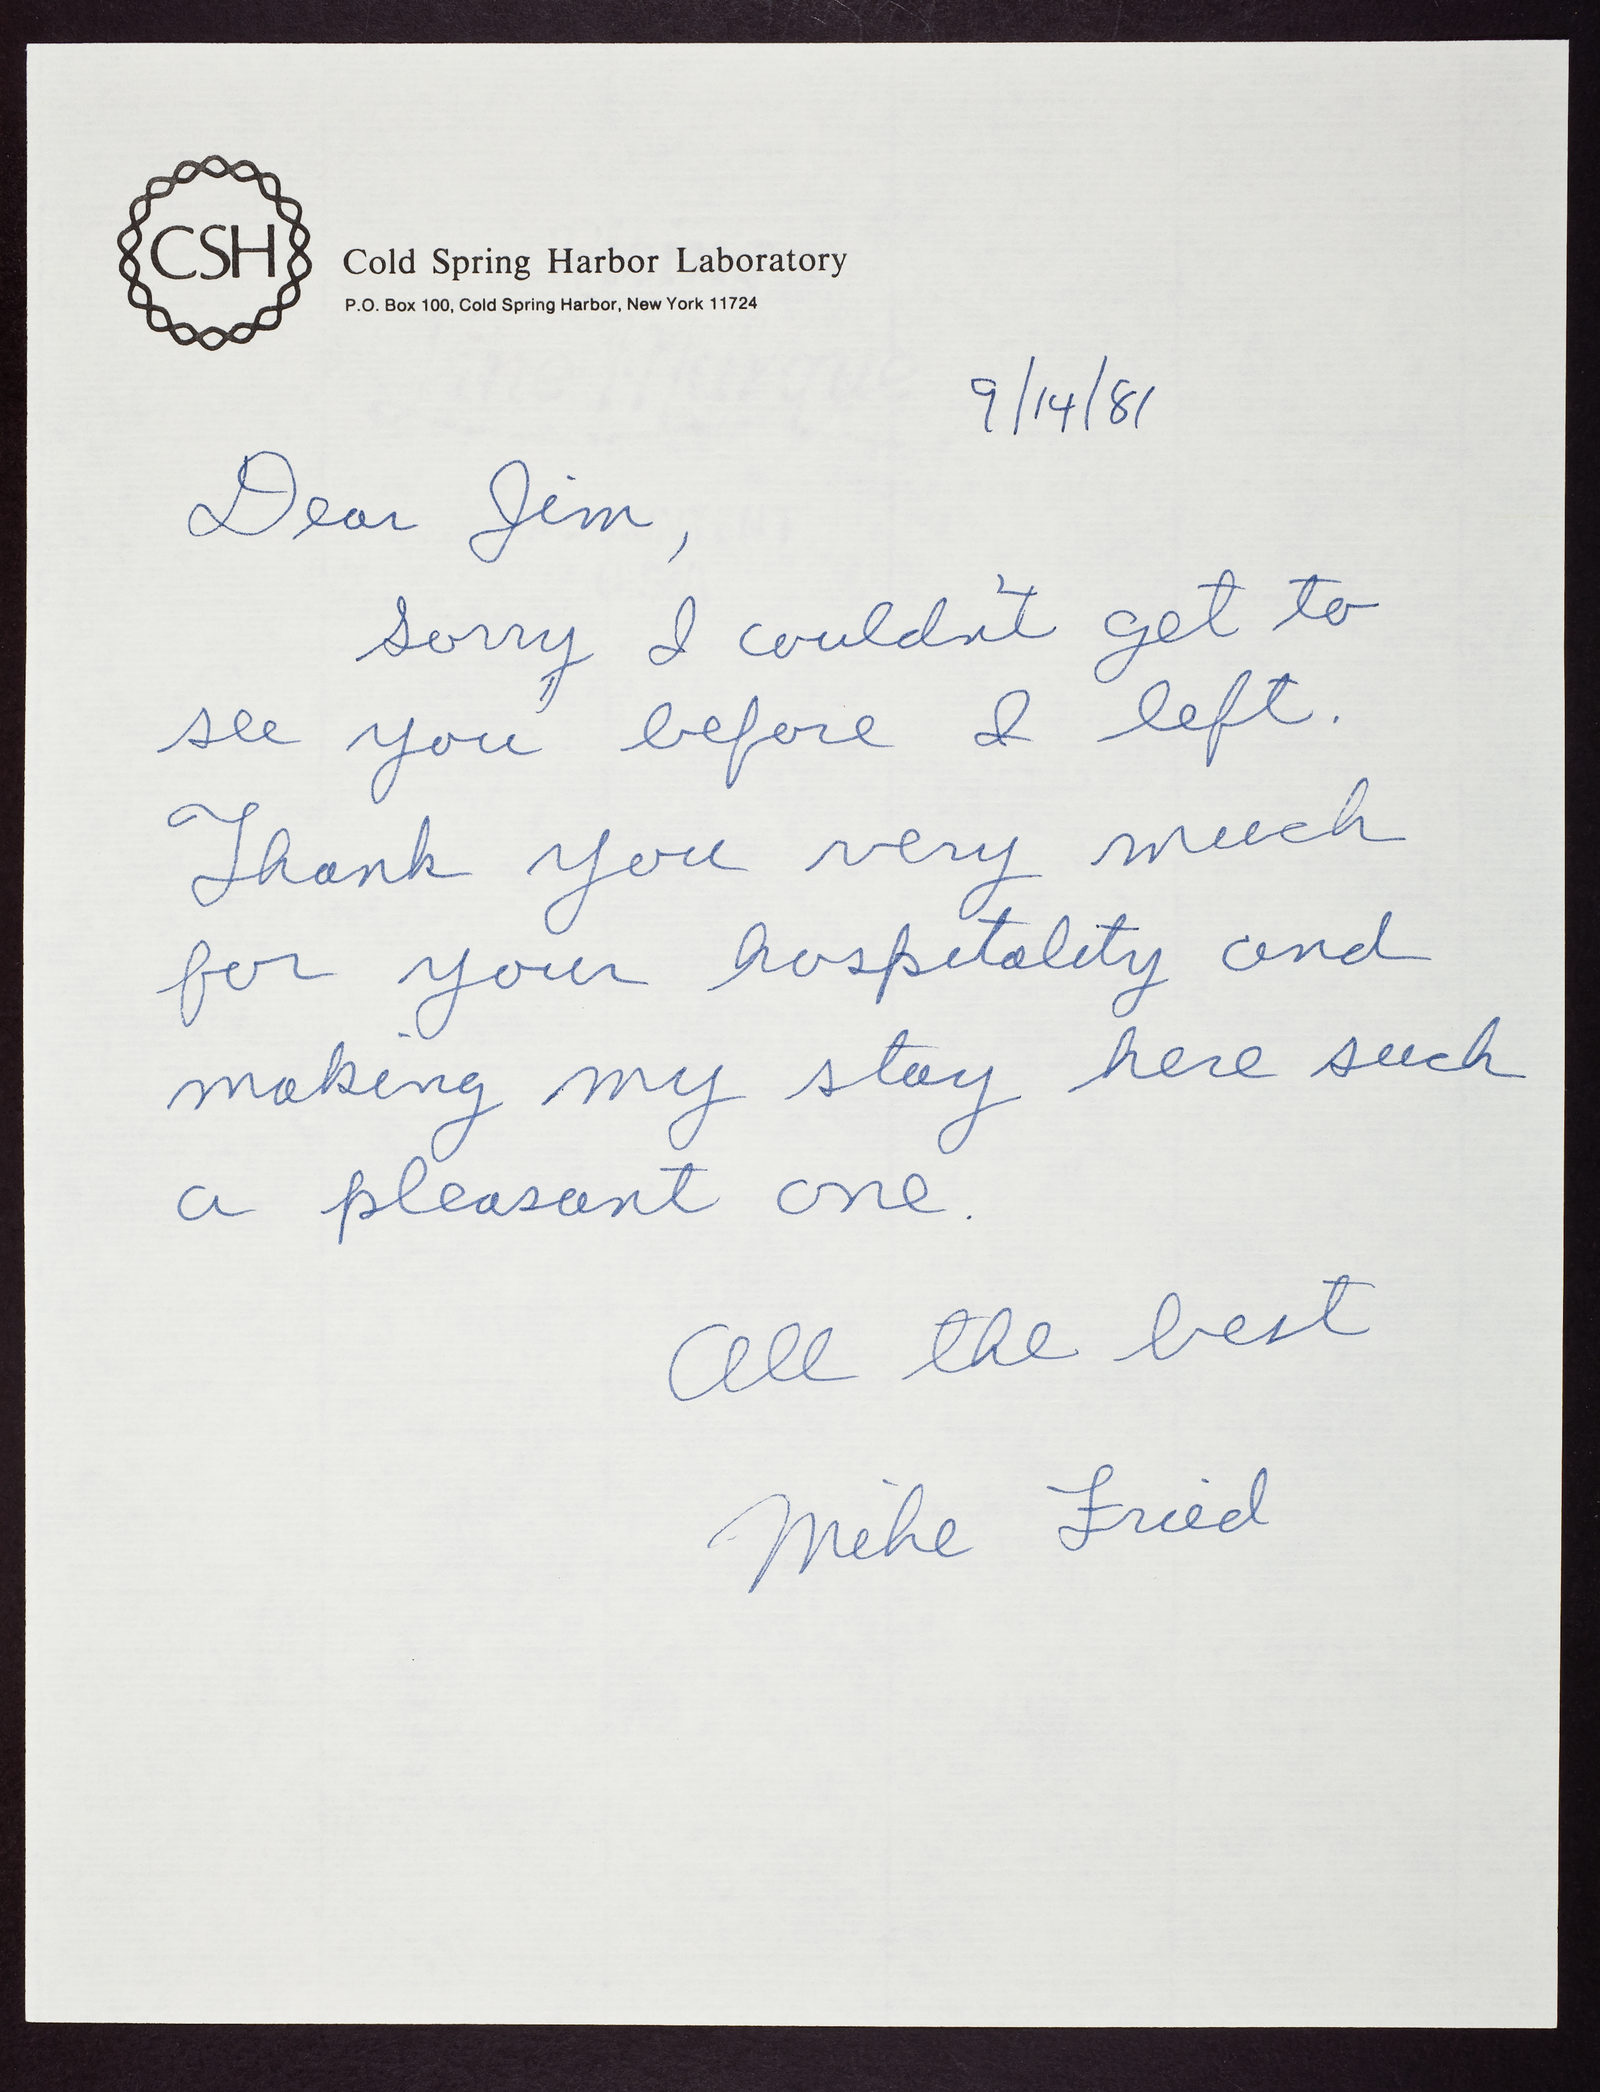 CSH
Cold Spring Harbor Laboratory
P.O. Box 100, Cold Spring Harbor, New York 11724
9/14/81
Dear Jim,
sorry I couldn't get to
see you before I left.
Thank you very much
for your hospitality and
making my stay here such
a pleasant one.
All the best
Mike Fried